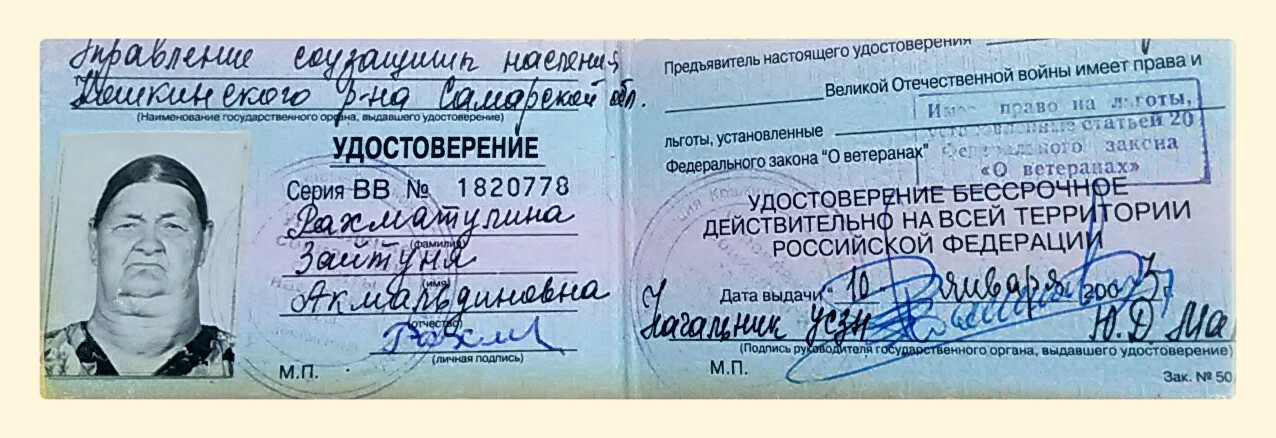 Управление соцзащиты населения
Кошкинского р-на Самарской обл.
(Наименование государственного органа, выдавшего удостоверение)
УДОСТОВЕРЕНИЕ
Серия ВВ № 1820778
Рахматулина
(фамилия)
Зайтуня
(имя)
Акмальдиновна
(отчество)
(личная подпись)
М.П.
Предъявитель настоящего удостоверения
Великой Отечественной войны имеет права и
льготы, установленные
Федерального закона "О ветеранах"
Имеет право на льготы,
установленные статьей 20
Федерального закона
«О ветеранах»
УДОСТОВЕРЕНИЕ БЕССРОЧНОЕ
ДЕЙСТВИТЕЛЬНО НА ВСЕЙ ТЕРРИТОРИИ
РОССИЙСКОЙ ФЕДЕРАЦИИ
Дата выдачи "10 января 200
Начальник УСЗН Ю.Д. Ма
(Подпись руководителя государственного органа, выдавшего удостоверение)
М.П.
Зак. № 50